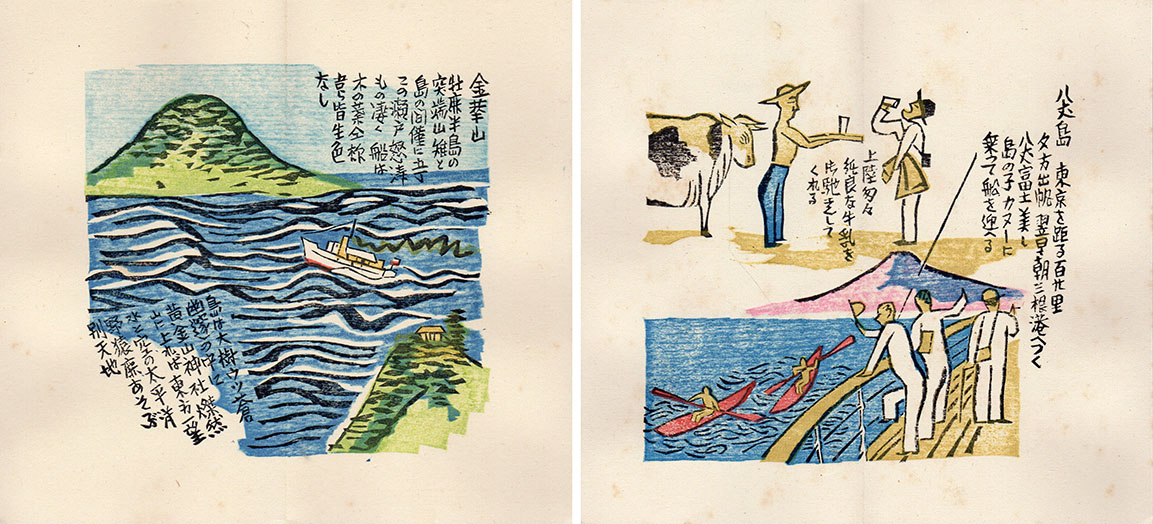 金華山
牡鹿半島の
突端山雉と
島の間僅に十丁
この瀬戸怒濤
もの凄く船は
木の葉全
皆生色
なし
島は大樹ウツ蒼
幽邃の中に
黄金山神社燦然
山に上れば東方一望
水と空の太平洋
野猿鹿あそぶ
別天地
八丈島 東京を距る百廿里
夕方出帆 翌早朝三根港へつく
八丈富士美し
島の子カヌーに
乗つて船を迎へる
上陸多々
純良な牛乳を
御馳走して
くれる